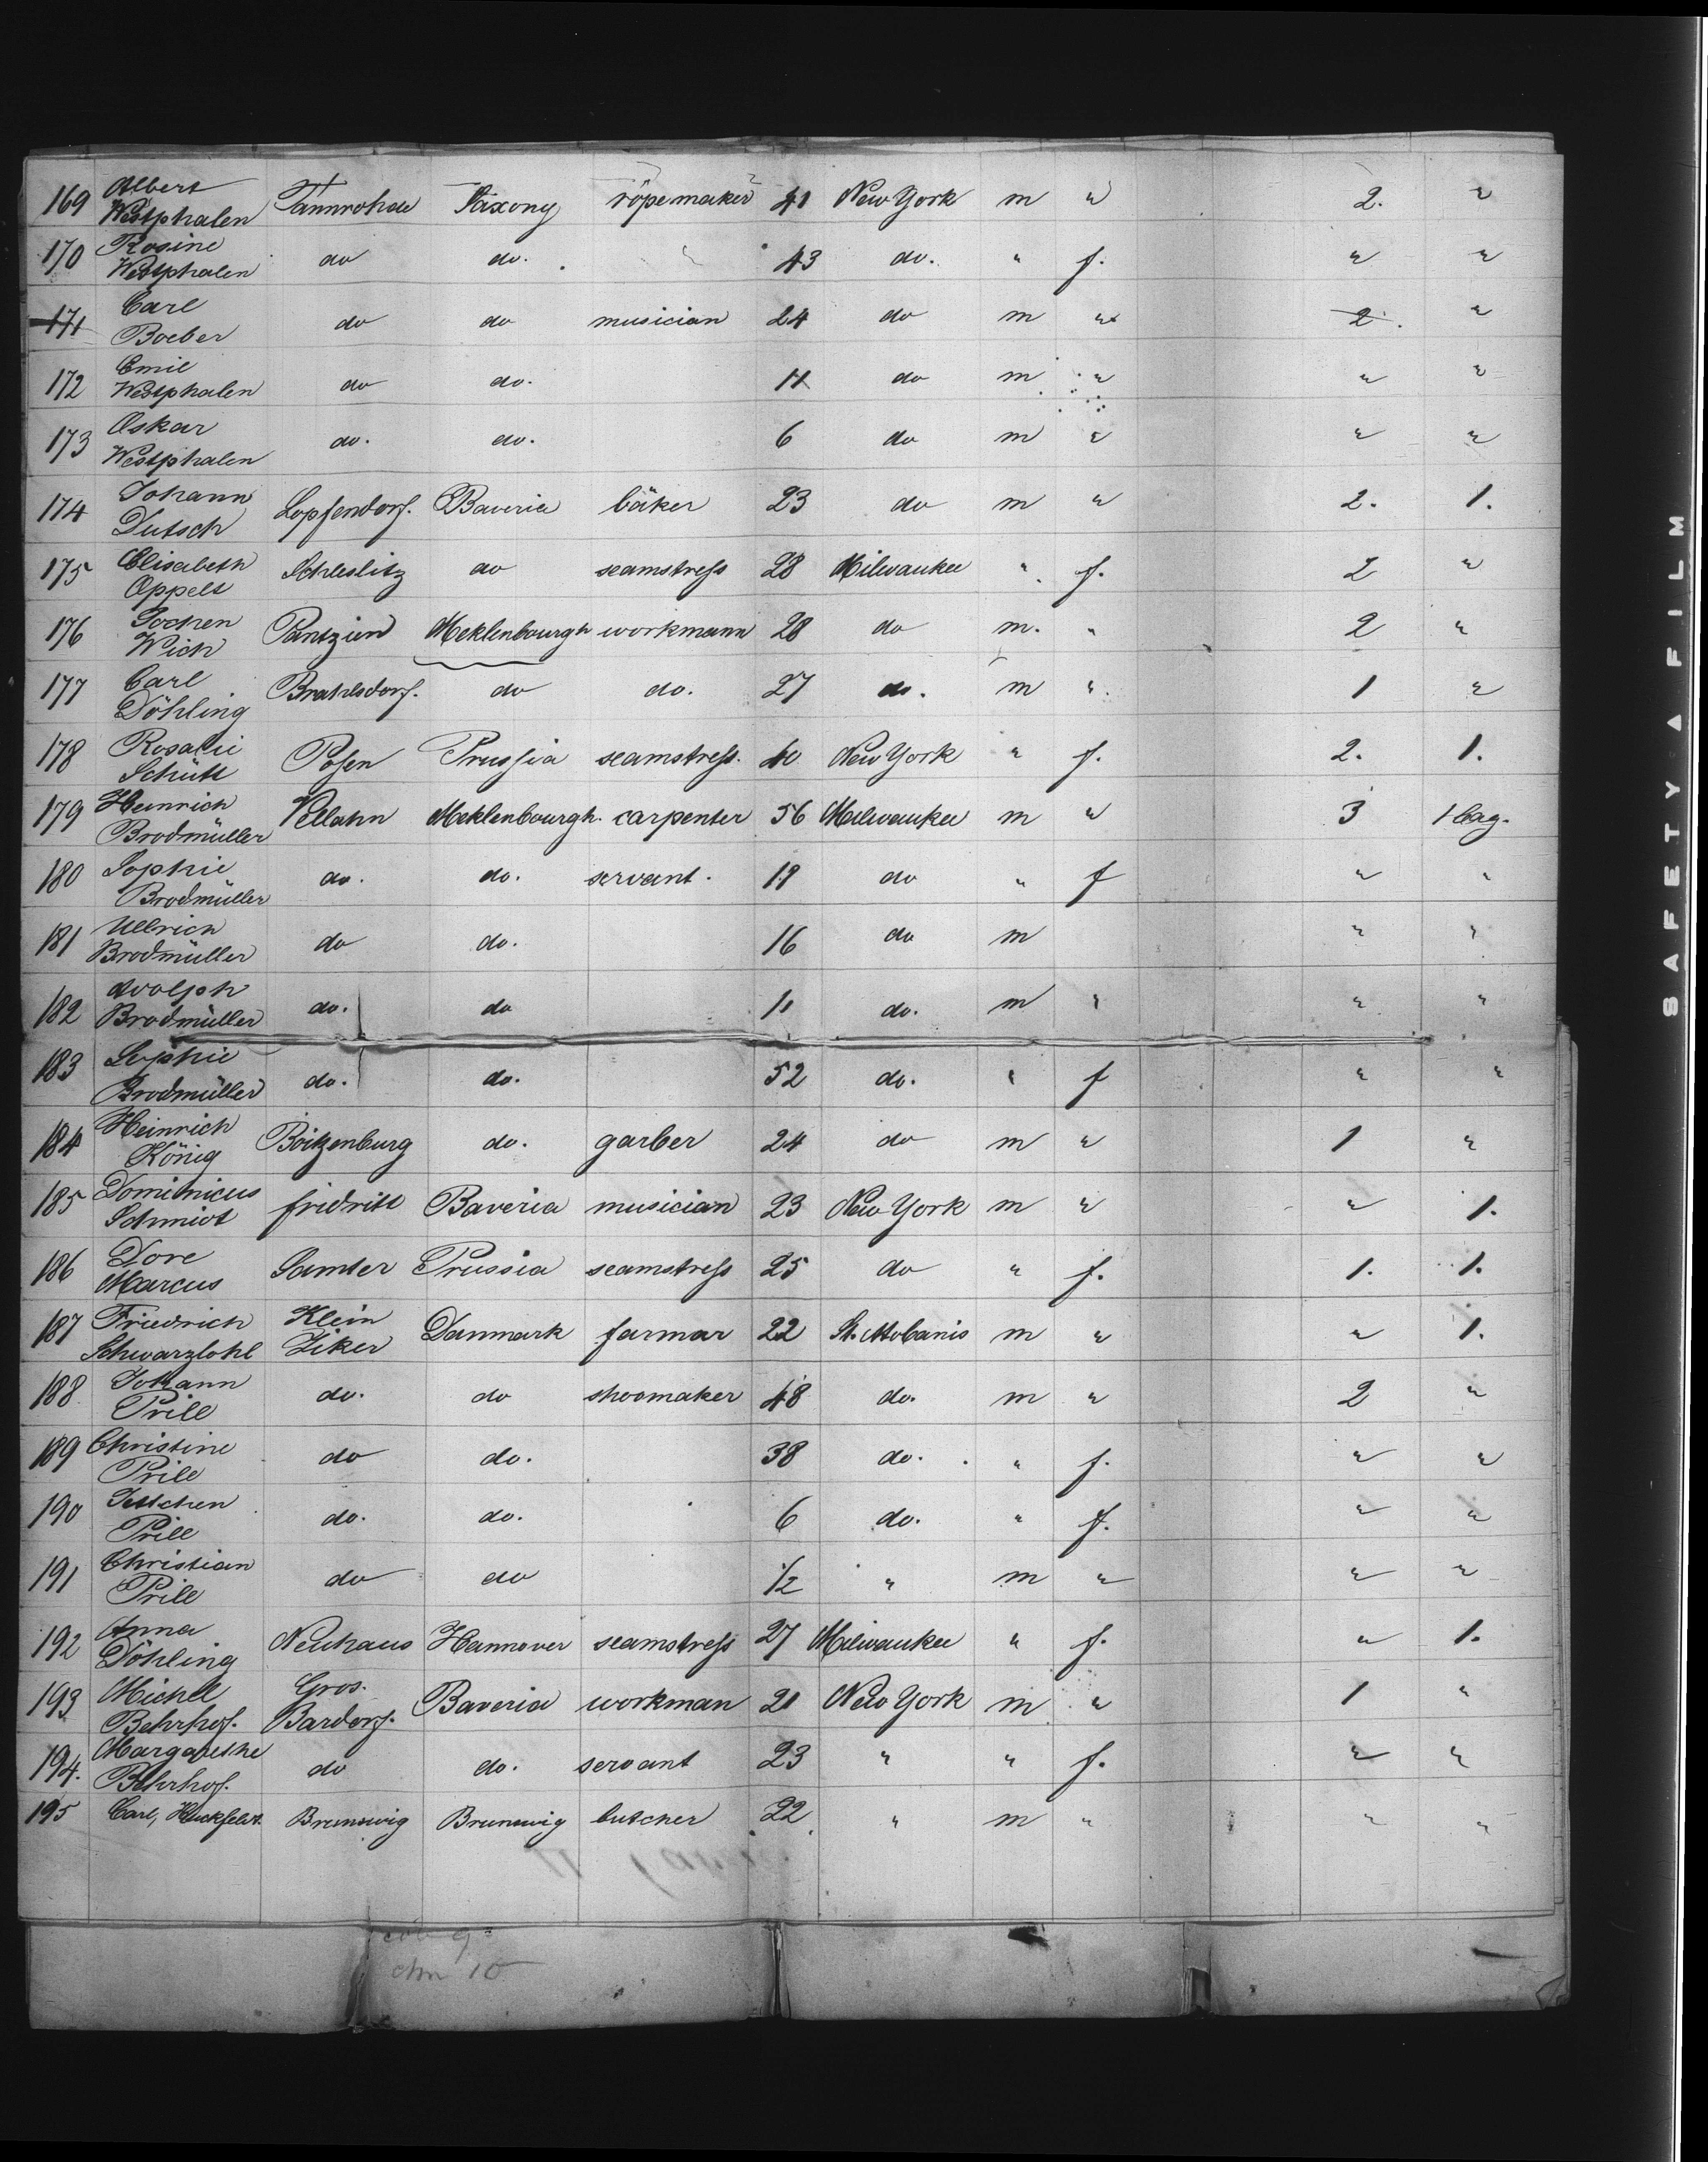 169 Albert Westphalen Tannrohde Saxony röpemaker 41 New York m " 2. "
170 Rosine Westphalen do do. " 43 do. " f. " "
171 Carl Boeber do do musician 24 do m " 2. "
172 Emil Westphalen do do. 11 do m " " "
173 Oskar Westphalen do. do. 6 do m " " "
174 Johann Dutsch Lopfendorf. Baveria bäker 23 do m " 2. 1.
175 Elisabeth Oppelt Schleslitz do seamstress 28 Milwaukee " f. 2 "
176 Jochen Wich Pantzien Meklenbourgh workmann 28 do m. " 2 "
177 Carl Döhling Brahlsdorf. do do. 27 do. m " 1 "
178 Rosalie Schütt Posen Prussia seamstress. 40 New York " f. 2. 1.
179 Heinrich Brodmüller Vellahn Meklenbourgh. carpenter 56 Milwaukee m " 3 1 bag.
180 Sophie Brodmüller do. do. servant. 19 do " f " "
181 Ullrich Brodmüller do do. 16 do m " "
182 Adolph Brodmüller do. do 11 do. m " " "
183 Sophie Brodmüller do. do. 52 do. " f " "
184 Heinrich König Boitzenburg do. garber 24 do m " 1 "
185 Dominicus Schmidt fridritt Baveria musician 23 New York m " " 1.
186 Dore Marcus Samter Prussia seamstress 25 do " f. 1. 1.
187 Friedrich Schwarzlohl Klein Ziker Danmark farmar 22 St. m " " 1.
188 Johann Prill do. do shoomaker 48 do. m " 2 "
189 Christine Prill do do. 38 do. " f. " "
190 Jettchen Prill do. do. 6 do. " f. " "
191 Christian Prill do do 1/2 " m " " "
192 Anna Döhling Neuhaus Hannover seamstress 27 Milwaukee " f. " 1.
193 Michel Behrhof. Gros. Bardorf. Baveria workman 21 New York m " 1 "
194. Margarethe Behrhof. do do. servant 23 " " f. " "
195 Carl, Huckfeldt. Brunswig Brunswig butcher 22 " m " " "
SAFETY ▲ FILM